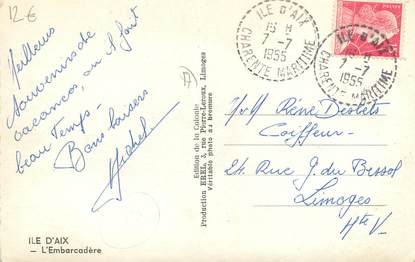 12€
Meilleurs
Souvenirs de
vacances, où il fait
beau Temps -
Bons baisers
Michel
ILE D'AIX
— L'Embarcadère
(A)
Edition de la Colonie
Production EREL, 3, rue Pierre-Leroux, Limoges
Véritable photo au bromure
ILE D'AIX
15 H
7-7
1955
CHARENTE MARITIME
ILE D'AIX
7-7
1955
CHARENTE MARITIME
M & Mme René
Coiffeur -
24 Rue J. du
Limoges
Hte V.